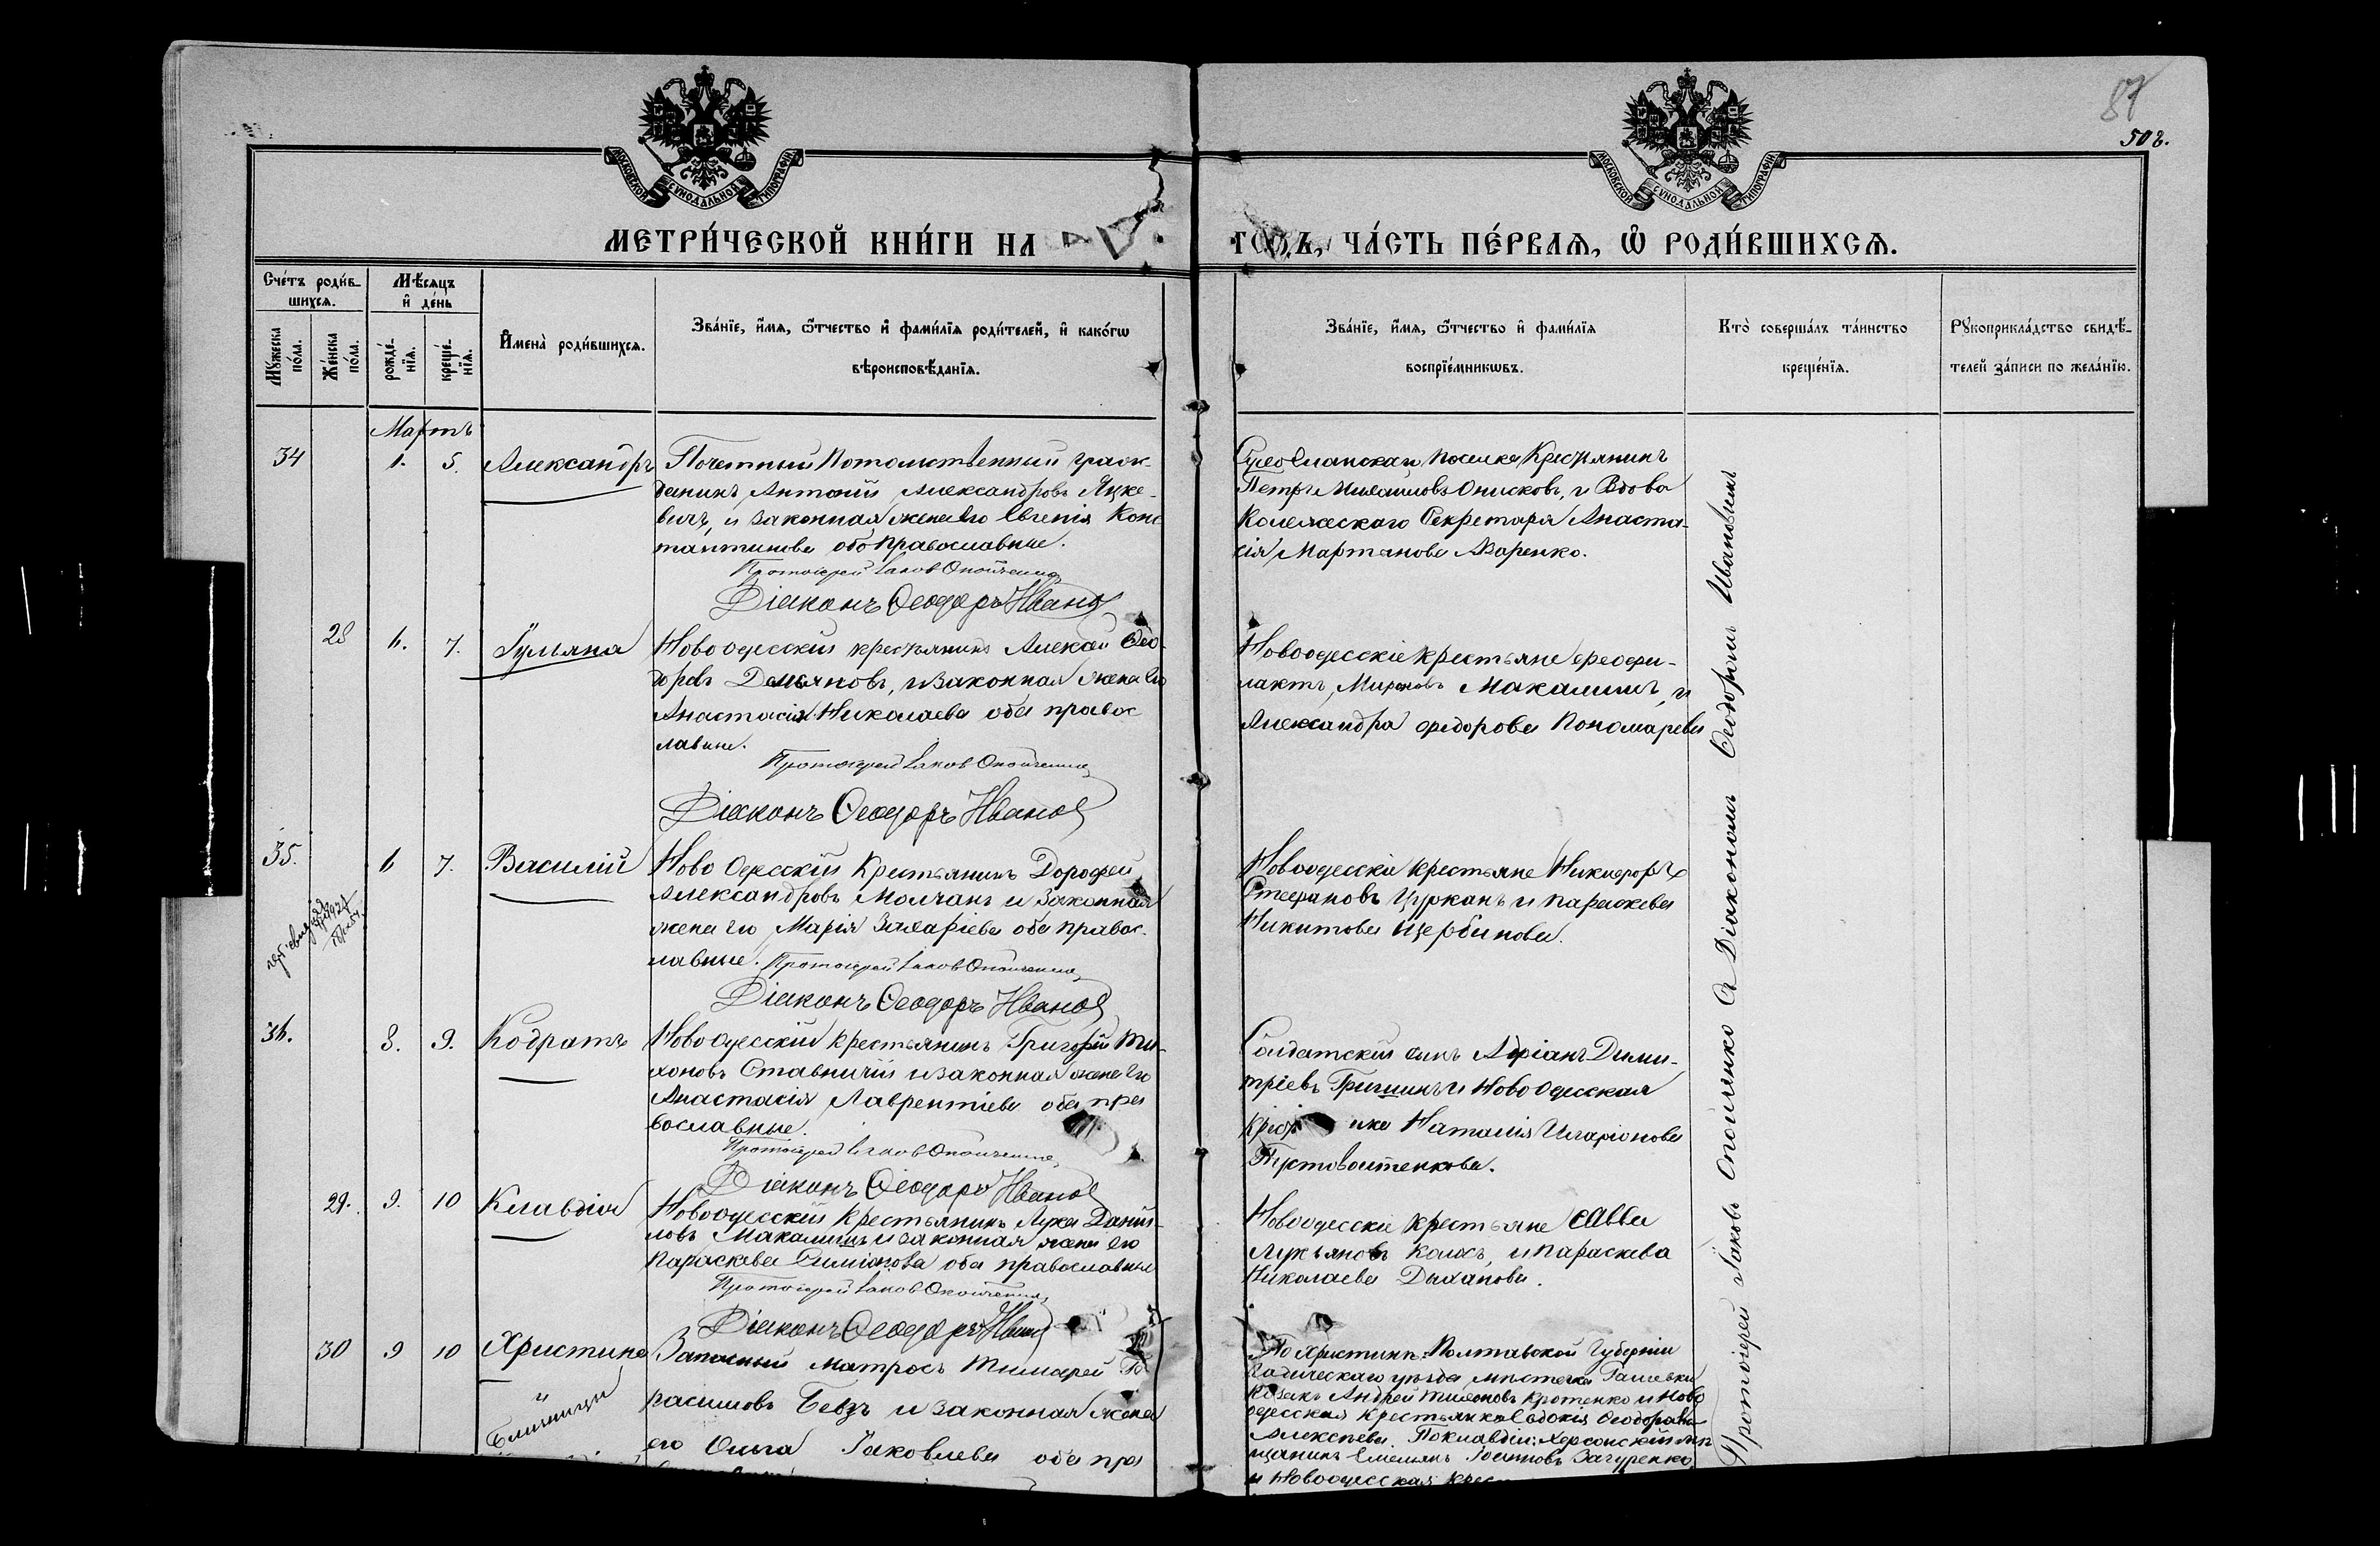 87
502.
МОСКОВСКОЙ СѴНОДАЛЬНОЙ ТИПОГРАФІИ
МОСКОВСКОЙ СѴНОДАЛЬНОЙ ТИПОГРАФІИ
МЕТРИ́ЧЕСКОЙ КНИ́ГИ НА
ГОДЪ, ЧА́СТЬ ПЕ́РВАѦ, Ѡ҆ РОДИ́ВШИХСѦ.
Сче́тъ роди́в-
шихсѧ.
Мꙋ́жеска
по́ла.
Же́нска
по́ла.
Мѣ́сѧцъ
и҆ де́нь
рожде́-
нїѧ.
креще́-
нїѧ.
И҆мена̀ роди́вшихсѧ.
Зва́нїе, и҆́мѧ, ѻ҆́тчество и҆ фами́лїѧ роди́телей, и҆ како́гѡ
вѣроисповѣ́данїѧ.
Зва́нїе, и҆́мѧ, ѻ҆́тчество и҆ фами́лїѧ
воспрїе́мникѡвъ.
Кто̀ соверша́лъ та́инство
креще́нїѧ.
Рꙋкоприкла́дство свидѣ́-
телей за́писи по жела́нїю.
Мартъ
34
1. 5.
Александръ
Почетный Потомственный граж-
данинъ Антоній Александровъ Яцке-
вичъ, и законная жена его Евгенія Конс
тантинова оба православные.
Протоіерей Іаковъ
Діаконъ Ѳеодоръ Иванов
поселка Крестьянинъ
Петръ Михайловъ Онисковъ, и Вдова
Колежскаго Секретаря Анаста-
сія Мартинова Азаренко.
28
6. 7.
Іуліяна
Новоодесскій крестьянинъ Алексѣй Ѳео
доровъ Демьяновъ, и законная жена его
Анастасія Николаева оба правос
лавные.
Протоіерей Іаковъ
Діаконъ Ѳеодоръ Иванов
Новоодесскіе крестьяне Ѳеофи-
лактъ Мироновъ Макалишъ, и
Александра Федорова Пономарева
35.
6 7.
Василій
Ново Одесскій Крестьянинъ Дорофей
Александровъ Молчанъ и законная
жена его Марія Захаріева оба правос-
лавные. Протоіерей Іаковъ
Діаконъ Ѳеодоръ Иванов
Новоодесскіе крестьяне Никифоръ
Стефановъ Цурканъ и Параскева
Никитова Щербинова.
36.
8. 9.
Кодратъ
Новоодесскій крестьянинъ Григорій Ти-
хоновъ Ставничій и законная жена его
Анастасія Лаврентіева оба пра
вославные.
Протоіерей Іаковъ
Діаконъ Ѳеодоръ Иванов
Солдатскій сынъ Адріанъ Дими-
тріевъ Гришинъ и Ново Одесская
Наталія Иларіонова
Пустовойтенкова.
29.
9. 10
Клавдія
Новоодесскій крестьянинъ Лука Даніи-
ловъ Макалишъ и законная жена его
Параскева Симіонова оба православные
Протоіерей Іаковъ
Діаконъ Ѳеодоръ Иванов
Новоодесскіе крестьяне Савва
Лукьяновъ и Параскева
Николаева Дыханова.
30
9 10
Христина
и
Близницы
Запасный матросъ Тимофей Ге
расимовъ Бевзъ и законная жена
его Ольга Іаковлева оба пра
По Христинѣ: Полтавской Губерніи
Гадическаго уѣзда мѣстечка
Козакъ Андрей Тихоновъ Кротенко и Ново
одесская Крестьянка Евдокія Ѳеодорова
Алексѣева По Клавдіи: Херсонскій мѣ
щанинъ Емельянъ Іосифовъ Загуренко
и Новоодесская
Протоіерей Іаковъ Опойченко съ Діакономъ Ѳеодоромъ Ивановымъ